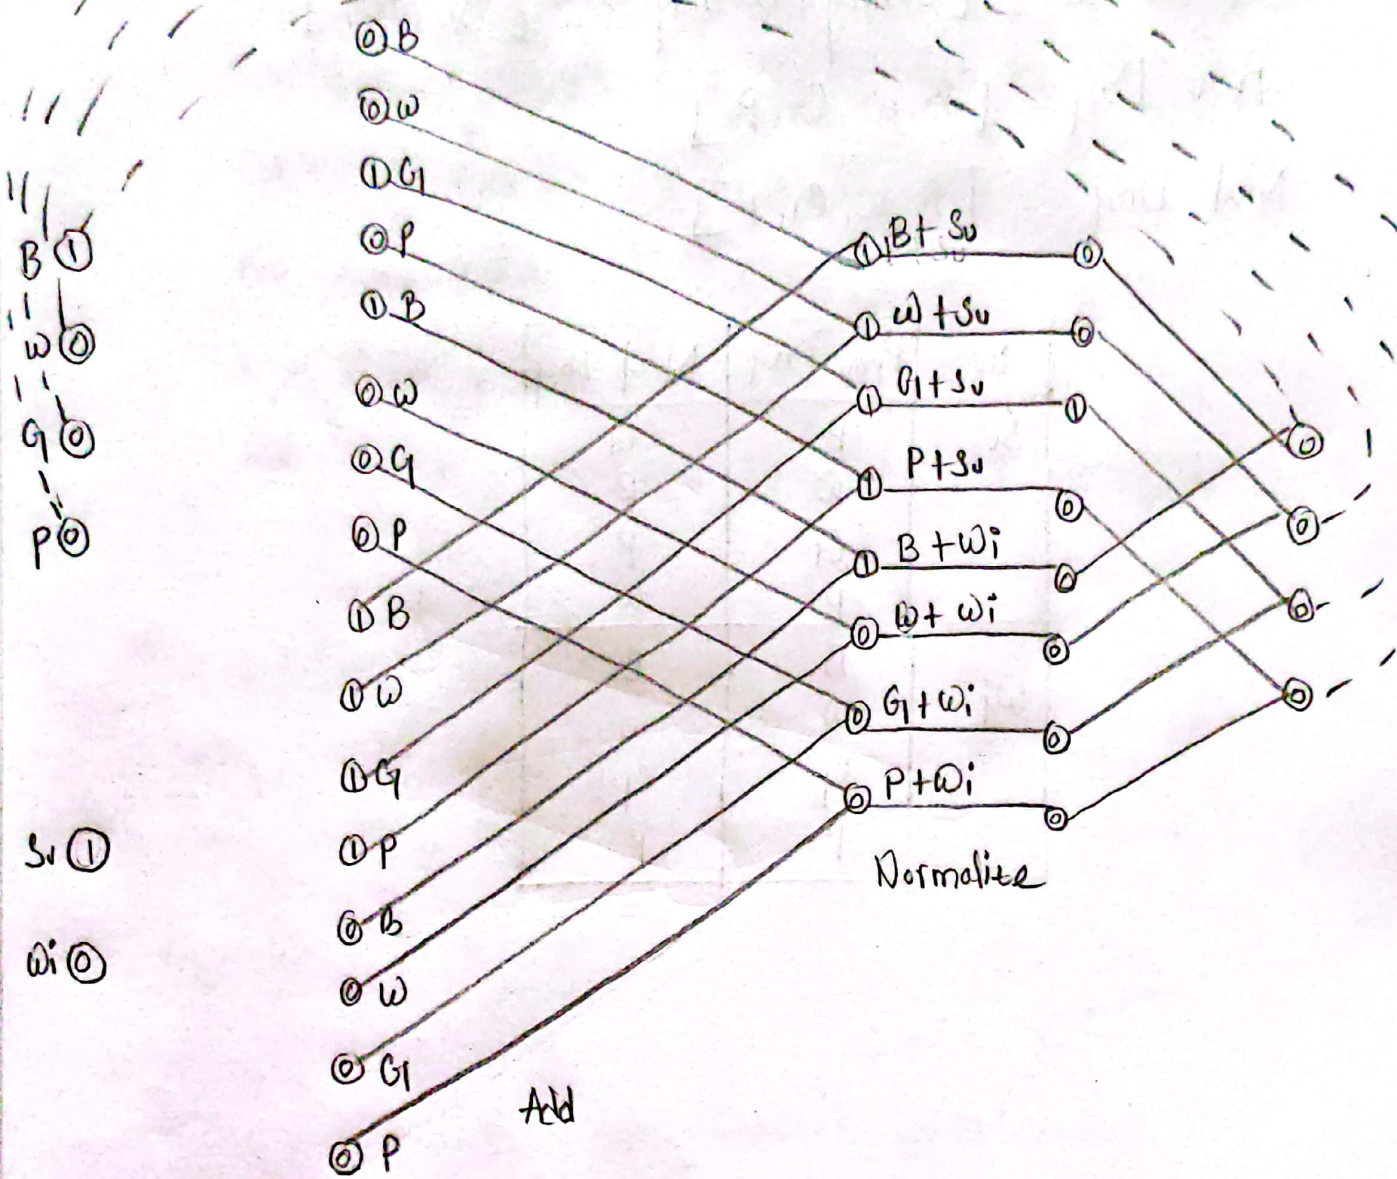 B 1
W 0
G 0
P 0
Su 1
Wi 0
0 B
0 W
1 G
0 P
1 B
0 W
0 G
0 P
1 B
1 W
1 G
1 P
0 B
0 W
0 G
0 P
Add
1 B + Su 0
1 W + Su 0
1 G + Su 1
1 P + Su 0
1 B + Wi 0
0 W + Wi 0
0 G + Wi 0
0 P + Wi 0
Normalize
0
0
0
0